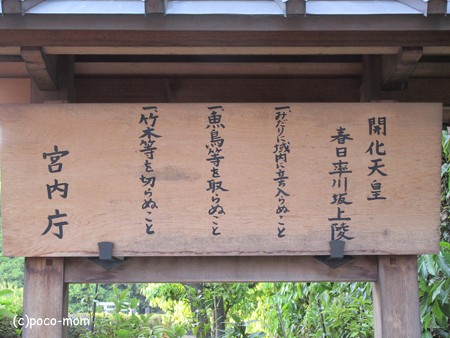 開化天皇
春日率川坂上陵
一、みだりに域内に立ち入らぬこと
一、魚鳥等を取らぬこと
一、竹木等を切らぬこと
宮内庁
(c)poco-mom